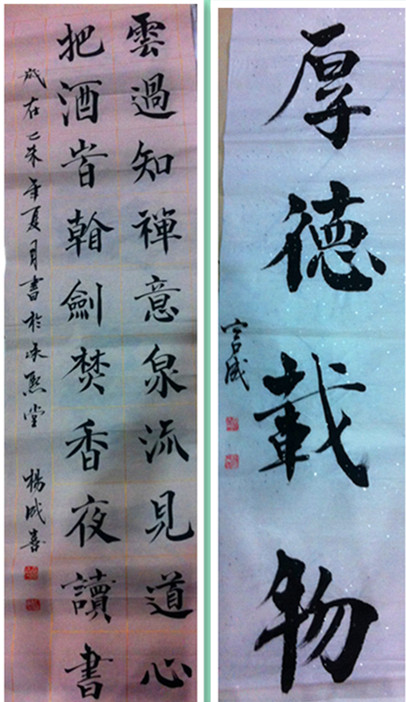 雲過知禪意泉流見道心
把酒旹看劍焚香夜讀書
歲在乙未年夏月書於堂 楊成喜
厚德載物